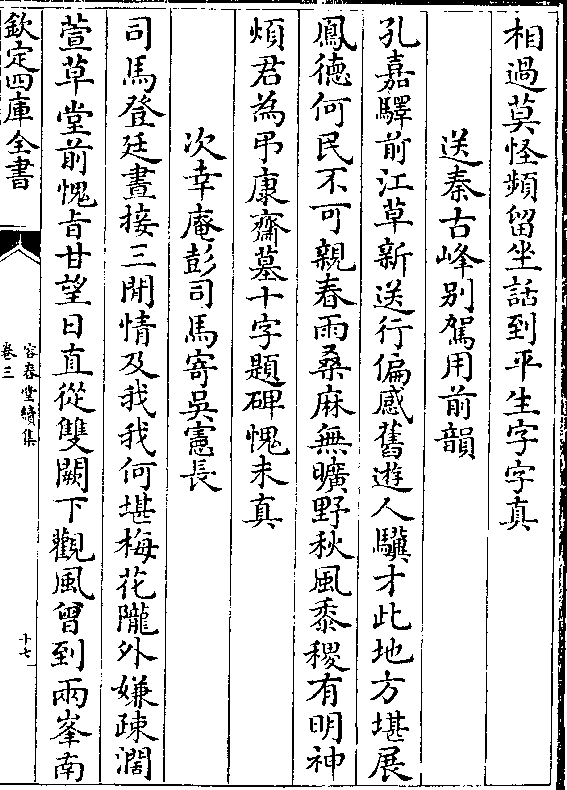 相過莫怪頻留坐話到平生字字真
送秦古峰别駕用前韻
孔嘉驛前江草新送行偏感舊遊人驥才此地方堪展
鳳德何民不可親春雨桑麻無曠野秋風黍稷有明神
煩君為弔康齋墓十字題碑愧未真
次幸庵彭司馬寄吳憲長
司馬登廷晝接三閒情及我我何堪梅花隴外嫌疎濶
萱草堂前愧旨甘望日直從雙闕下觀風曾到兩峯南
欽定四庫全書
容春堂續集
卷三
十七